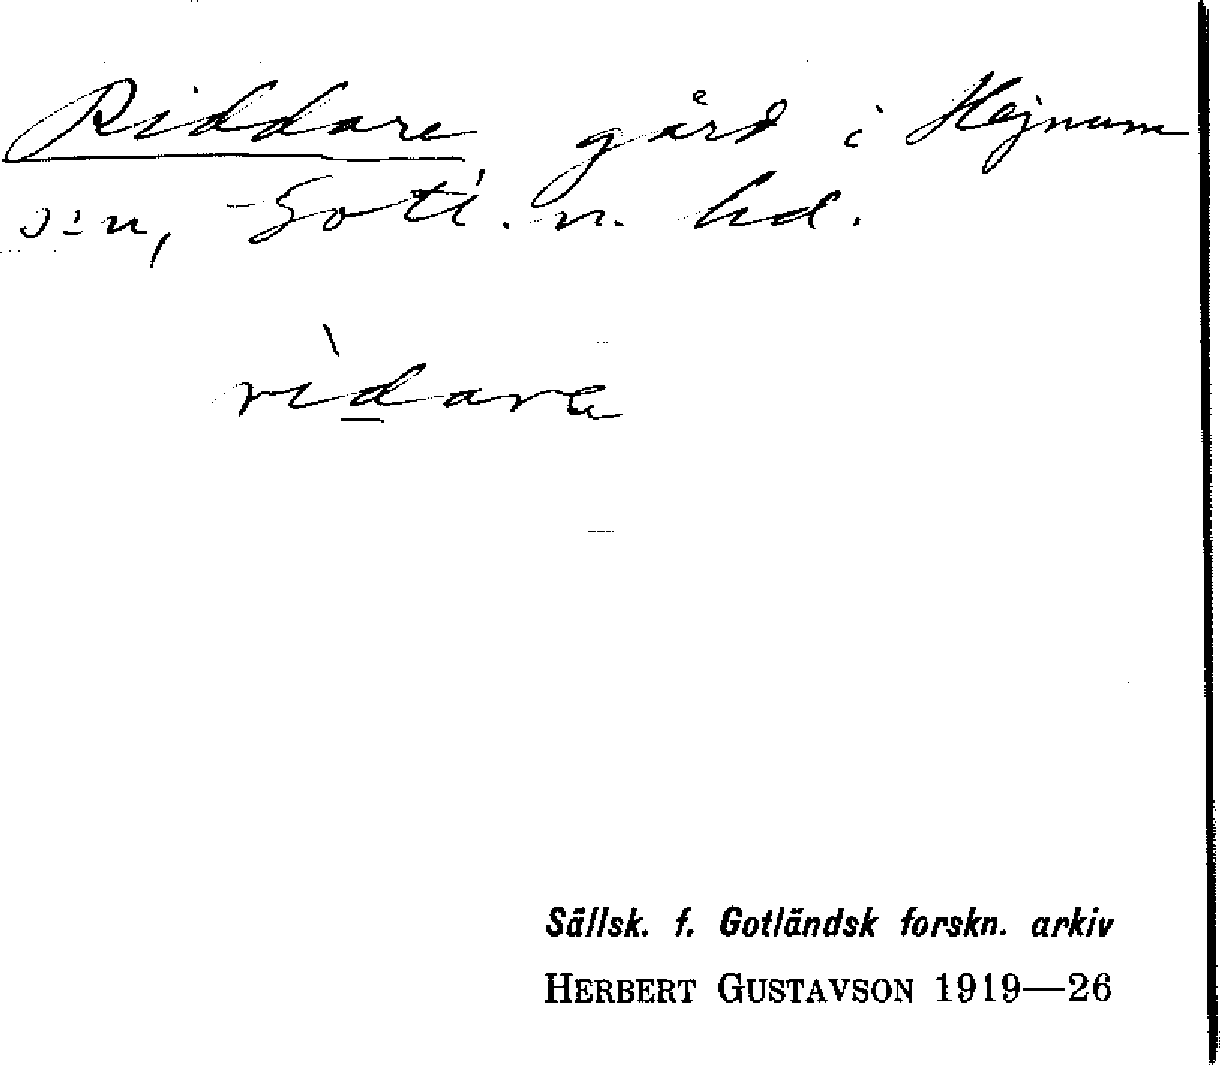 Riddare gård i Hejnum
s:n, Gotl. n. hd.
rìdara
Sällsk. f. Gotländsk forskn. arkiv
HERBERT GUSTAVSON 1919—26